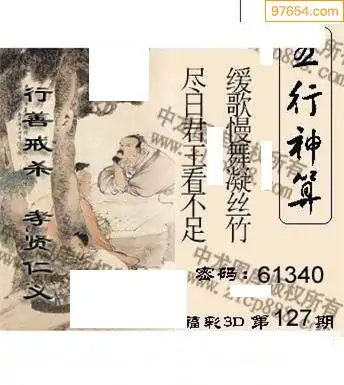 97654.com
五行神算
缓歌慢舞凝丝竹
尽日君王看不足
行善戒杀 孝贤仁义
密码：61340
福彩3D 第127期